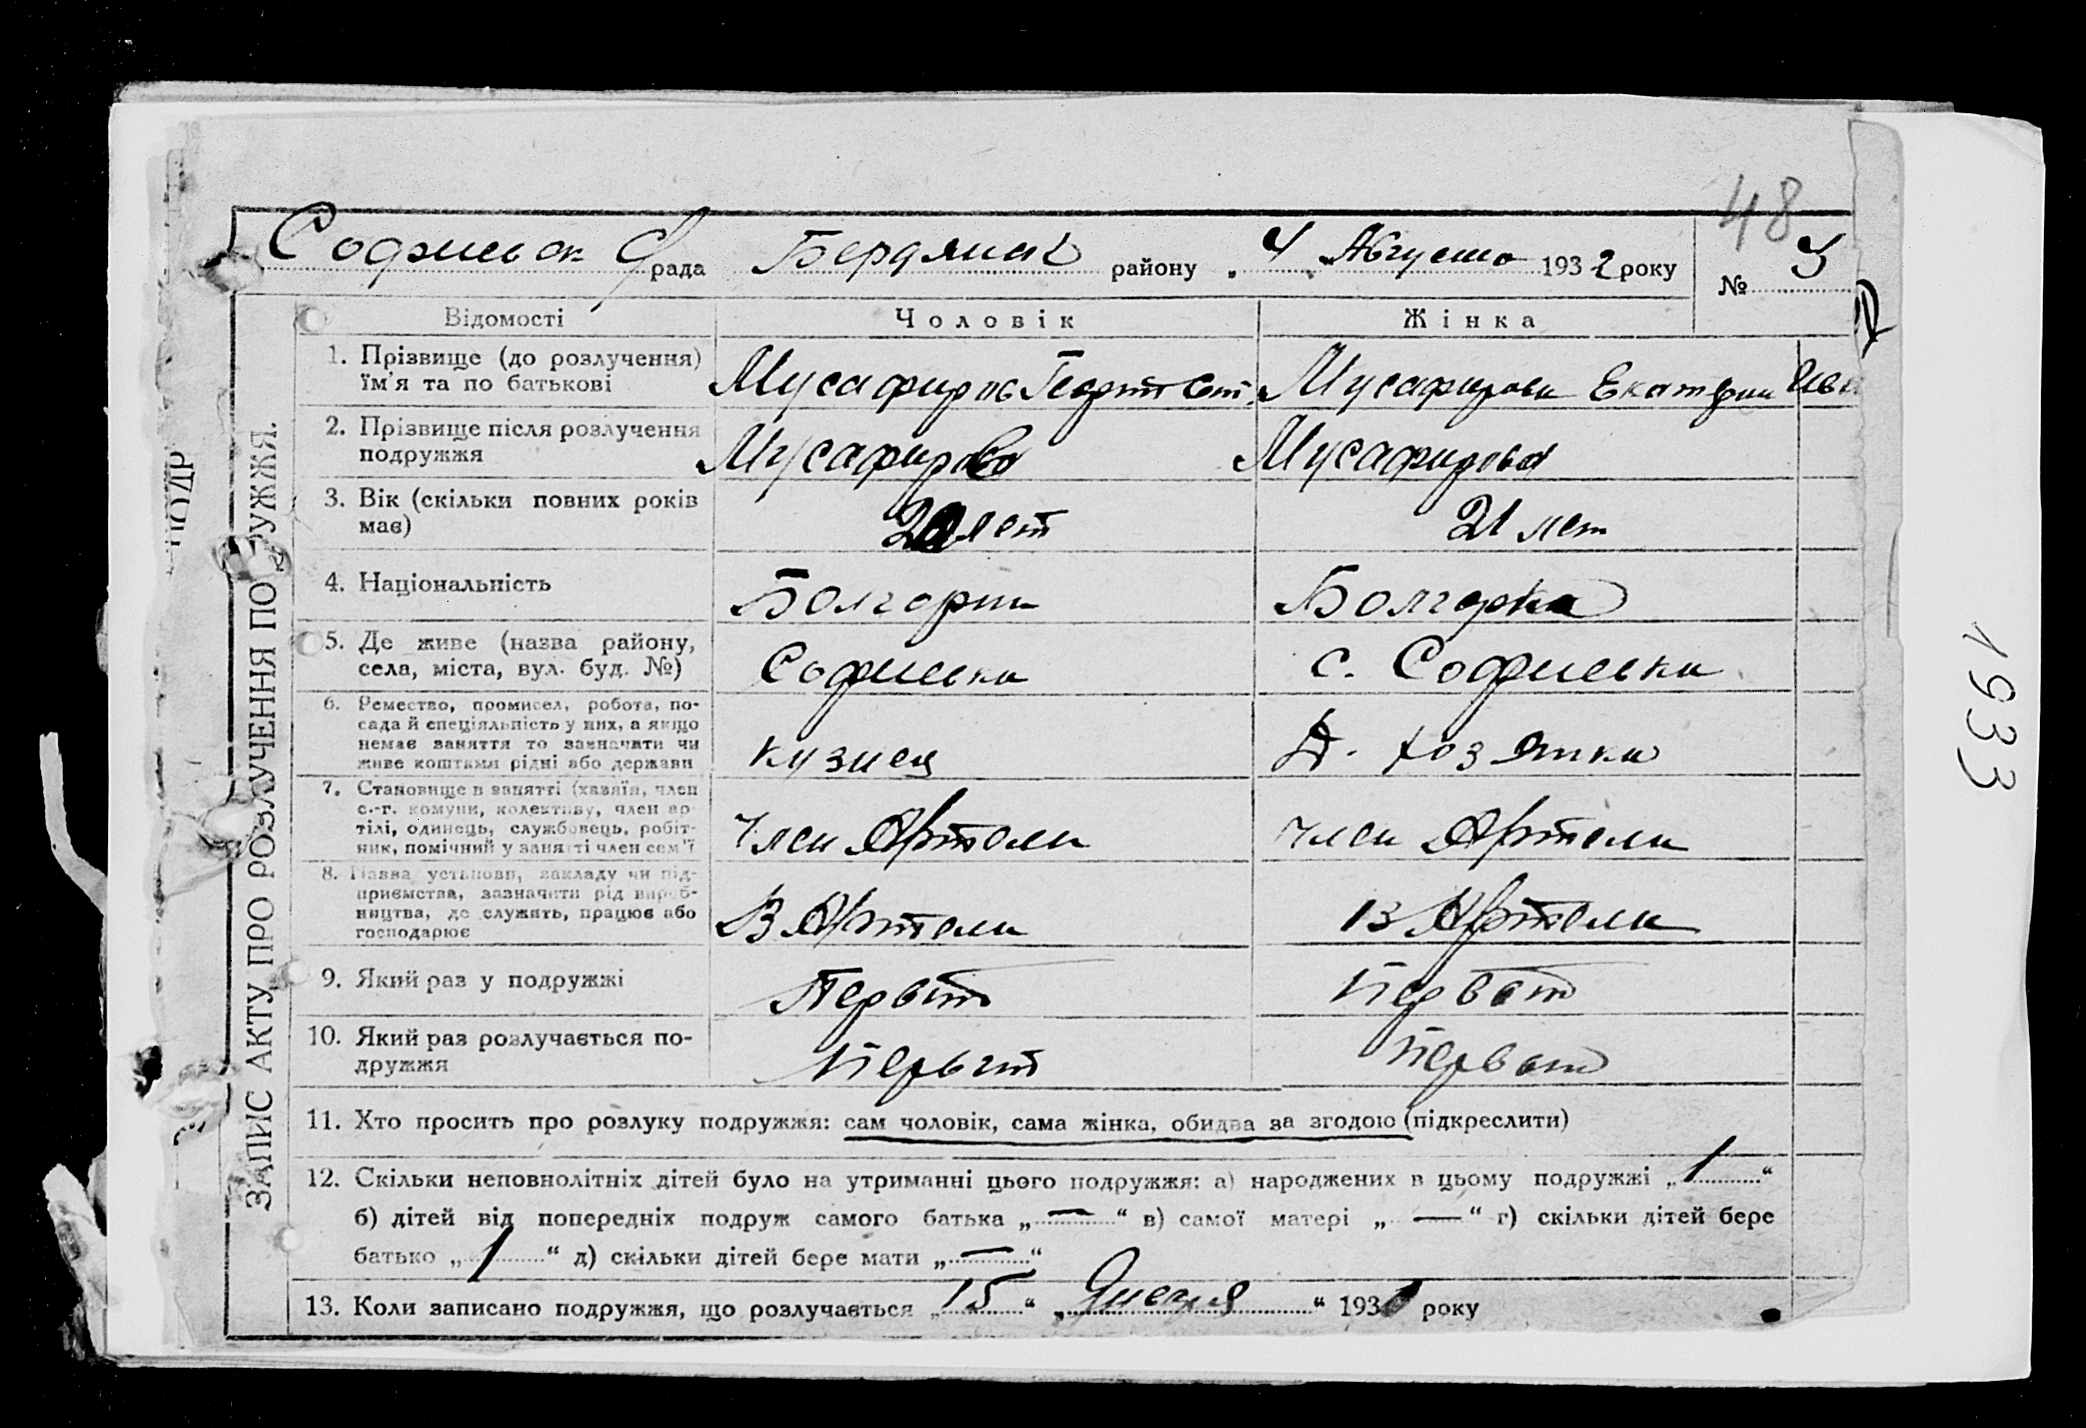 48
Софиевск С/рада Бердянск району „4 „Августа 1932 року № 3
Відомості Чоловік Жінка
1. Прізвище (до розлучення) їм'я та по батькові Мусафиров Георги Мусафирова Екатерин Ива
2. Прізвище після розлучення подружжя Мусафиров Мусафирова
3. Вік (скільки повних років має) лет 21 лет
4. Національність Болгарин Болгарка
5. Де живе (назва району, села, міста, вул. буд. №) Софиевка с. Софиевка
6. Ремество, промисел, робота, посада й спеціяльність у них, а якщо немає заняття то зазначити чи живе коштами рідні або держави кузнец Д. хозяйка
7. Становище в занятті (хазяїн, член с.-г. комуни, колективу, член артілі, одинець, службовець, робітник, помічний у занятті член сем'ї Член Артели Член Артели
8. Назва установи, закладу чи підприємства, зазначити рід виробництва, де служить, працює або господарює В Артели В Артели
9. Який раз у подружжі Первый Первый
10. Який раз розлучається подружжя Первый Первый
11. Хто просить про розлуку подружжя: сам чоловік, сама жінка, обидва за згодою (підкреслити)
12. Скільки неповнолітніх дітей було на утриманні цього подружжя: а) народжених в цьому подружжі „1“
б) дітей від попередніх подруж самого батька „—“ в) самої матері „—“ г) скільки дітей бере
батько „1“ д) скільки дітей бере мати „—“
13. Коли записано подружжя, що розлучається „15“ „Января“ 193 року
ЗАПИС АКТУ ПРО РОЗЛУЧЕННЯ ПОДРУЖЖЯ.
ПОДР
1933